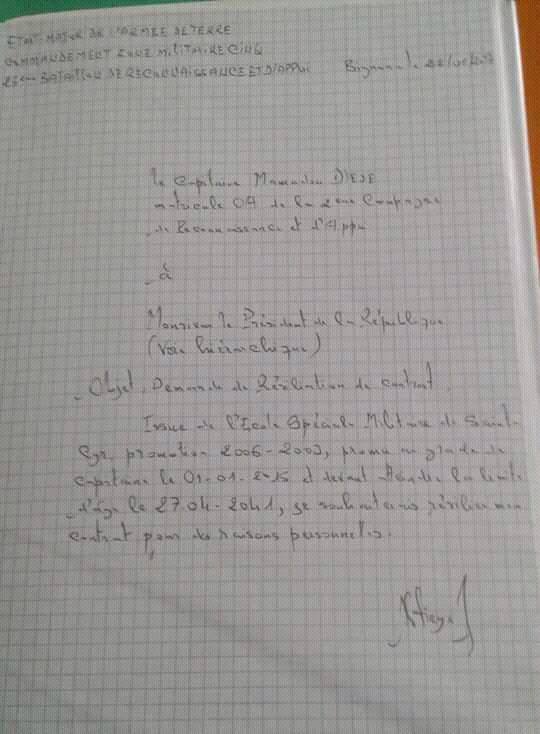 ETAT MAJOR DE L'ARMEE DE TERRE
COMMANDEMENT ZONE MILITAIRE CINQ
25ème BATAILLON DE RECONNAISSANCE ET D'APPUI Bignona le
le Capitaine Mamadou DIEYE
matricule de la 2ème Compagnie
de Reconnaissance et d'Appui
à
Monsieur le Président de la République
(Voie hiérarchique)
Objet : Demande de Résiliation de contrat.
Issu de l'Ecole Spéciale Militaire de Saint-
Cyr, promotion 2006-2009, promu au grade de
capitaine le 01-01-2015 et devant atteindre la limite
d'âge le 27-04-2041, je souhaiterais résilier mon
contrat pour des raisons personnelles.